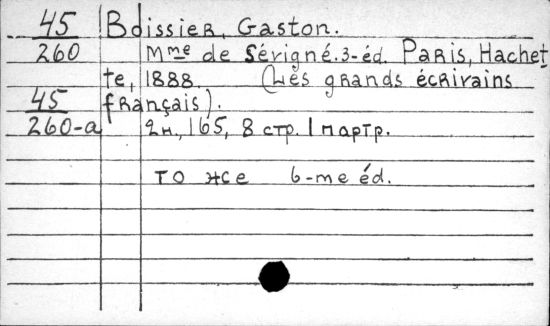 45 Boissier, Gaston.
260 Mme de Sévigné. 3-éd. Paris, Hachet
te, 1888. (Les grands écrivains
45 français).
260-a 2н., 165, 8 стр. 1 партр.
то же 6-me éd.